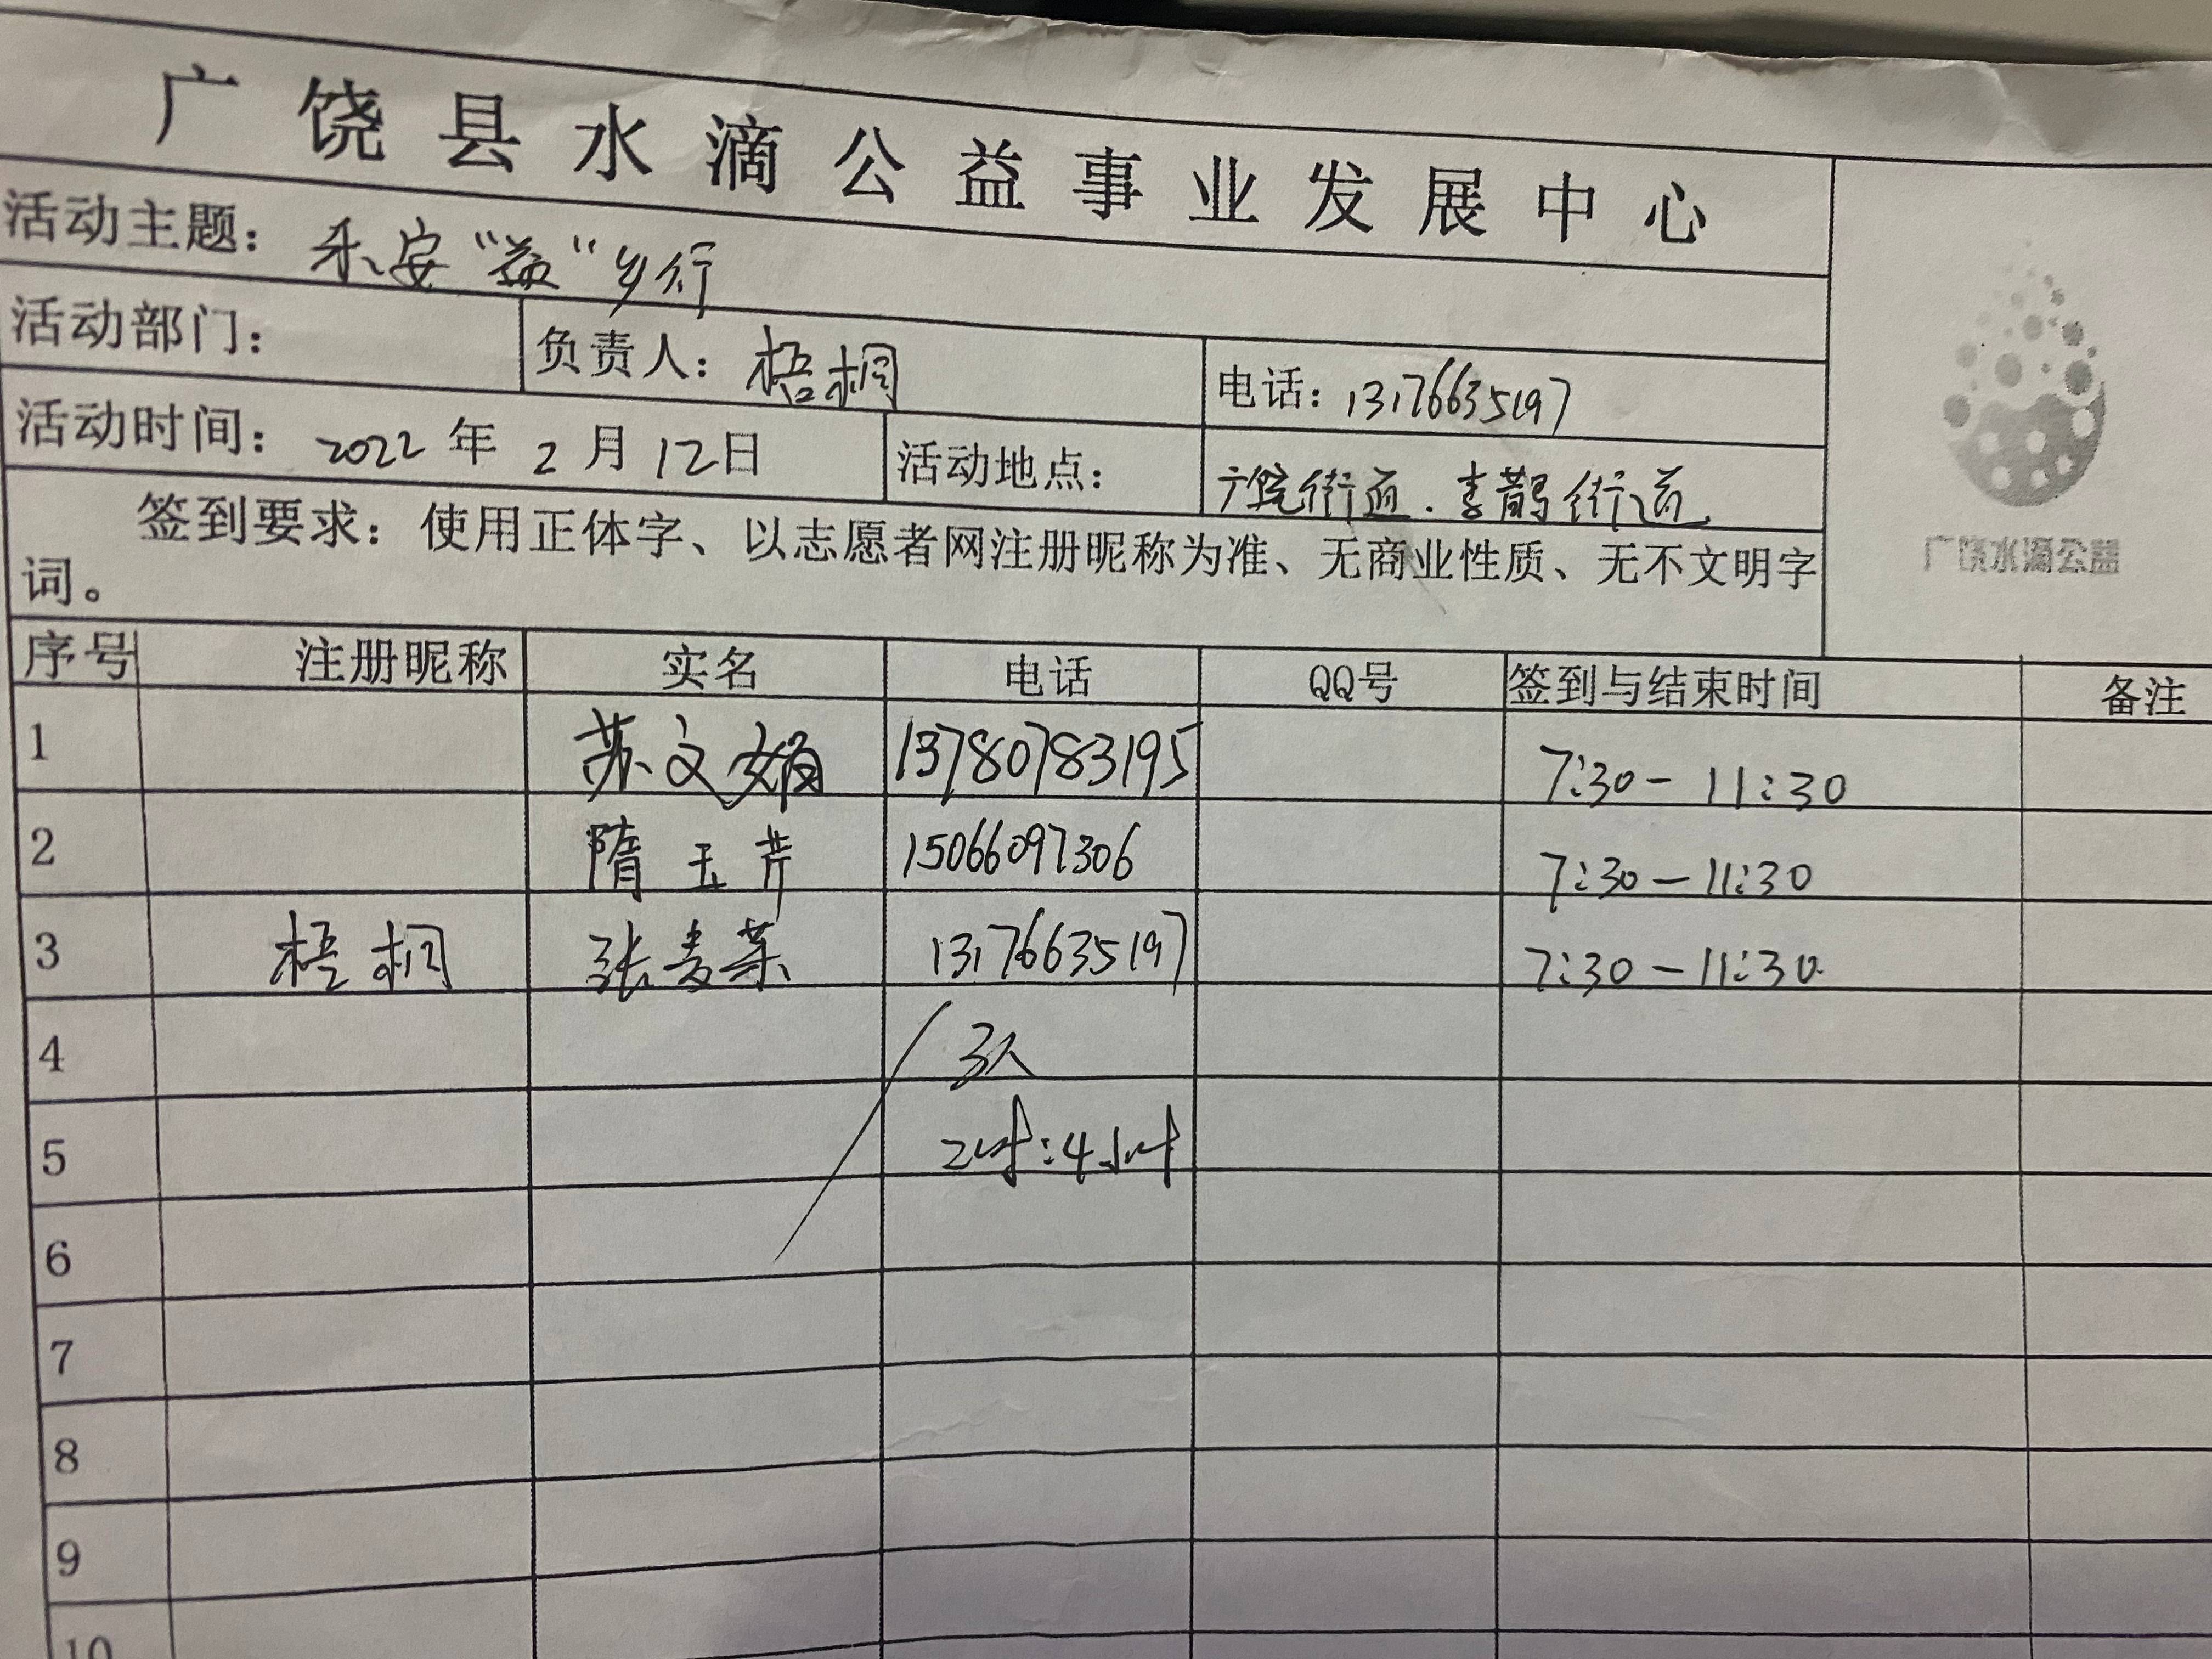 广饶县水滴公益事业发展中心
活动主题：乐安“益”乡行
活动部门： 负责人：梧桐 电话：13176635197
活动时间：2022年2月12日 活动地点：广饶街道.李鹊街道
签到要求：使用正体字、以志愿者网注册昵称为准、无商业性质、无不文明字
词。
广饶水滴公益
序号 注册昵称 实名 电话 QQ号 签到与结束时间 备注
1 苏文娟 13780783195 7:30-11:30
2 隋玉芹 15066097306 7:30-11:30
3 梧桐 张麦荣 13176635197 7:30-11:30
4 3人
5 :4小时
6
7
8
9
10